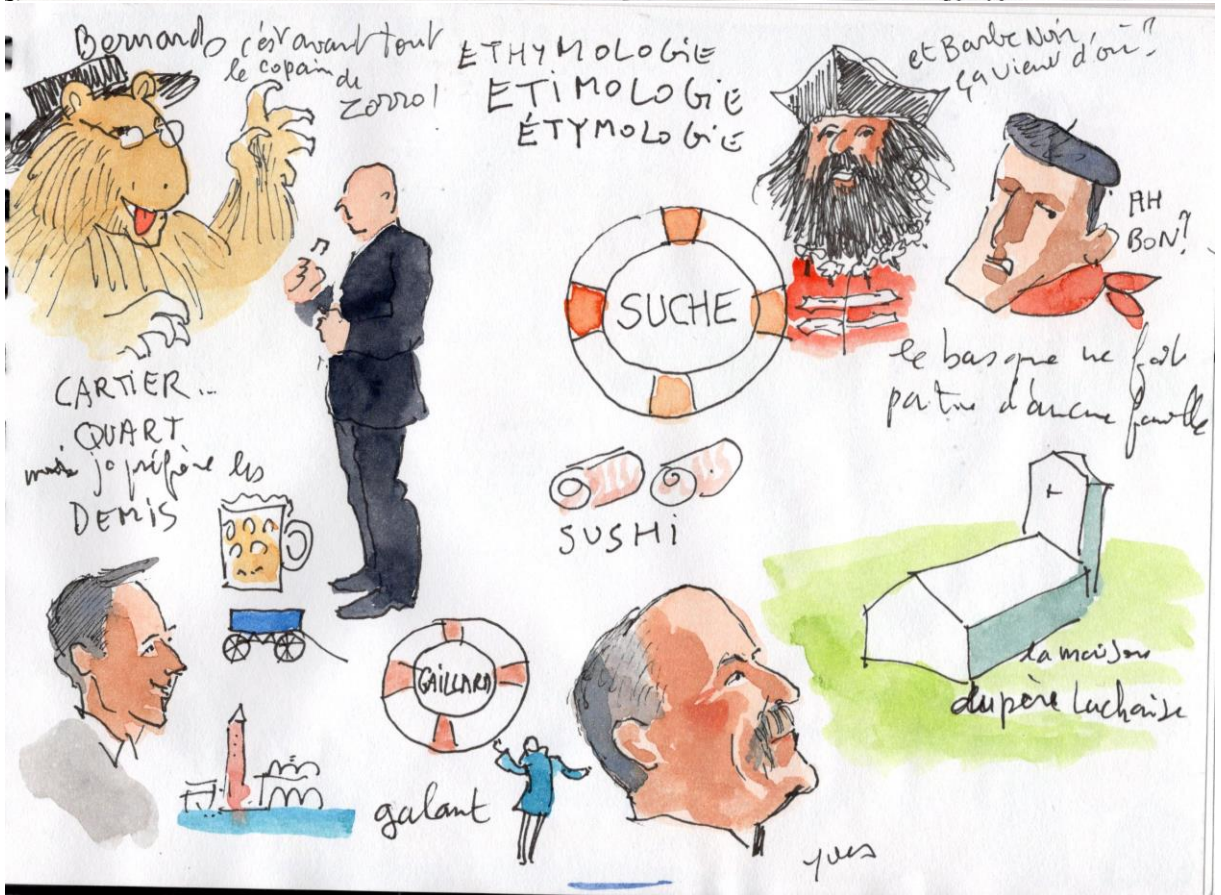 Bernardo c'est avant tout
le copain
de
Zorro!
ETHYMOLOGIE
ETIMOLOGIE
ÉTYMOLOGIE
et Barbe Noire,
ça vient d'où?
AH
BON?
SUCHE
le basque ne fait
partie d'aucune famille
CARTIER...
QUART
mais je préfère les
DEMIS
SUSHI
GAILLARD
galant
la maison
du père Lachaise
yves